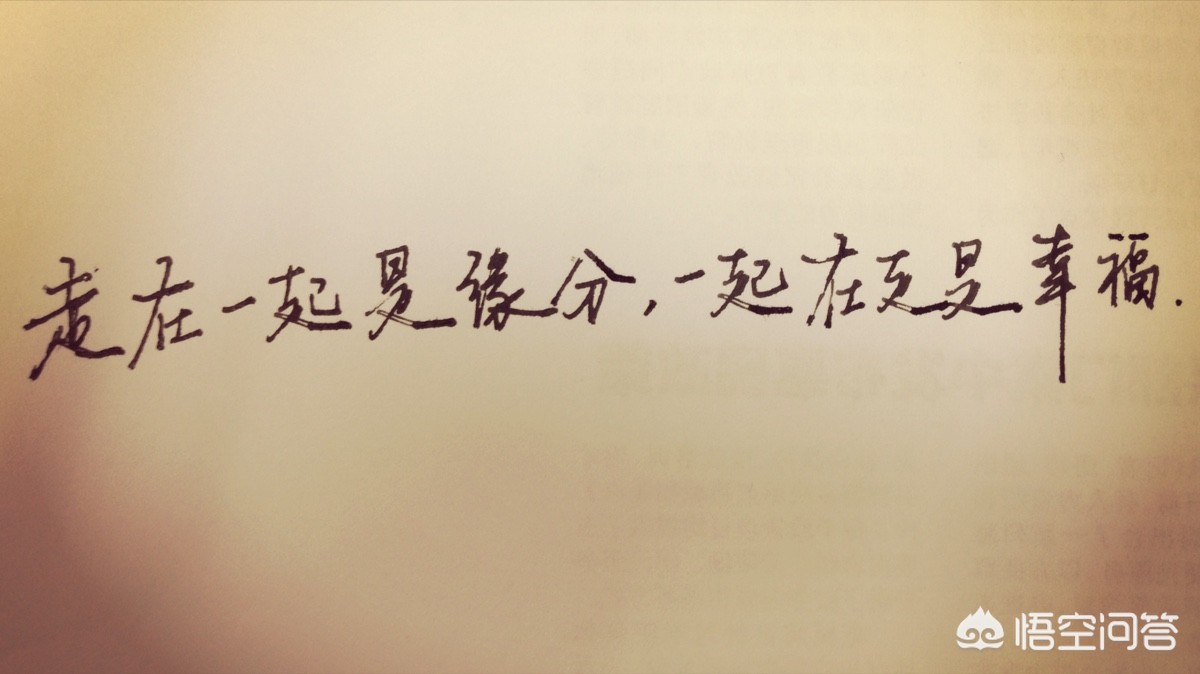 走在一起是缘分，一起在更是幸福.
悟空问答